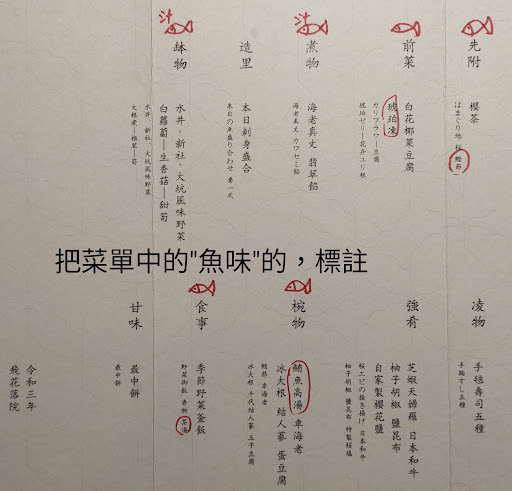 先附
櫻茶
はまぐり地 桜 鰹節
前菜
白花椰菜豆腐
琥珀凍
カリフラワー豆腐
琥珀ゼリー 花弁ユリ根
汁
煮物
海老真丈 翡翠餡
海老真丈 カワセミ餡
造里
本日刺身盛合
本日の魚盛り合わせ 妻一式
汁
鉢物
水井、新社、大坑風味野菜
白蘿蔔—生香菇—甜筍
水井、新社、大坑風味野菜
大根煮—椎茸—筍
把菜單中的"魚味"的，標註
凌物
手毬壽司五種
手鞠すし五種
強肴
芝蝦天婦羅 日本和牛
柚子胡椒 鹽昆布
自家製櫻花鹽
桜エビの掻き揚げ 日本和牛
柚子胡椒 塩昆布 特製桜塩
椀物
鮪魚高湯 車海老
冰大根 結人蔘 蛋豆腐
鮪節 車海老
冰大根 千代結人蔘 玉子豆腐
食事
季節野菜茶飯
野菜御飯 香物 茶湯
甘味
最中餅
最中餅
令和三年
飛花落院